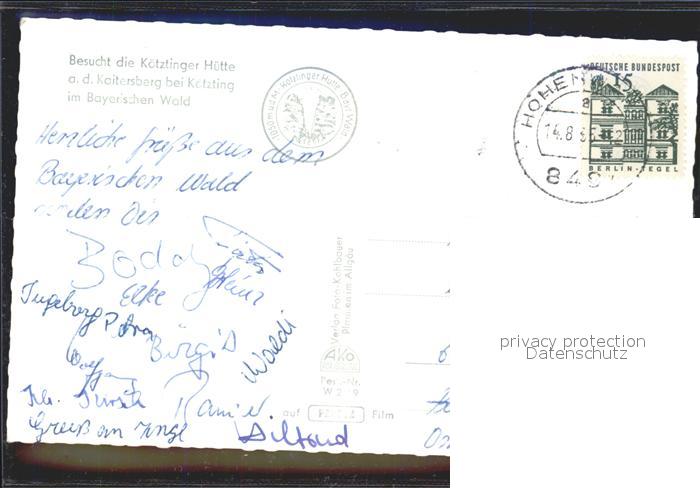 Besucht die Kötztinger Hütte
a. d. Kaitersberg bei Kötzting
im Bayerischen Wald
Kötztinger Hütte, Bayr. Wald
DEUTSCHE BUNDESPOST
15
BERLIN-TEGEL
HOHEN
a
14.8.65
849
Herzliche Grüße aus dem
Bayerischen Wald
senden Dir
Elke
Heinz
Ingeborg Petra
Birgid
Waldi
Wolfgang
Gruß an Inge
Hiltrud
Verlag Foto-Kohlbauer
Pfronten im Allgäu
AKO
Pers.-Nr.
W 2
auf
Film
privacy protection
Datenschutz